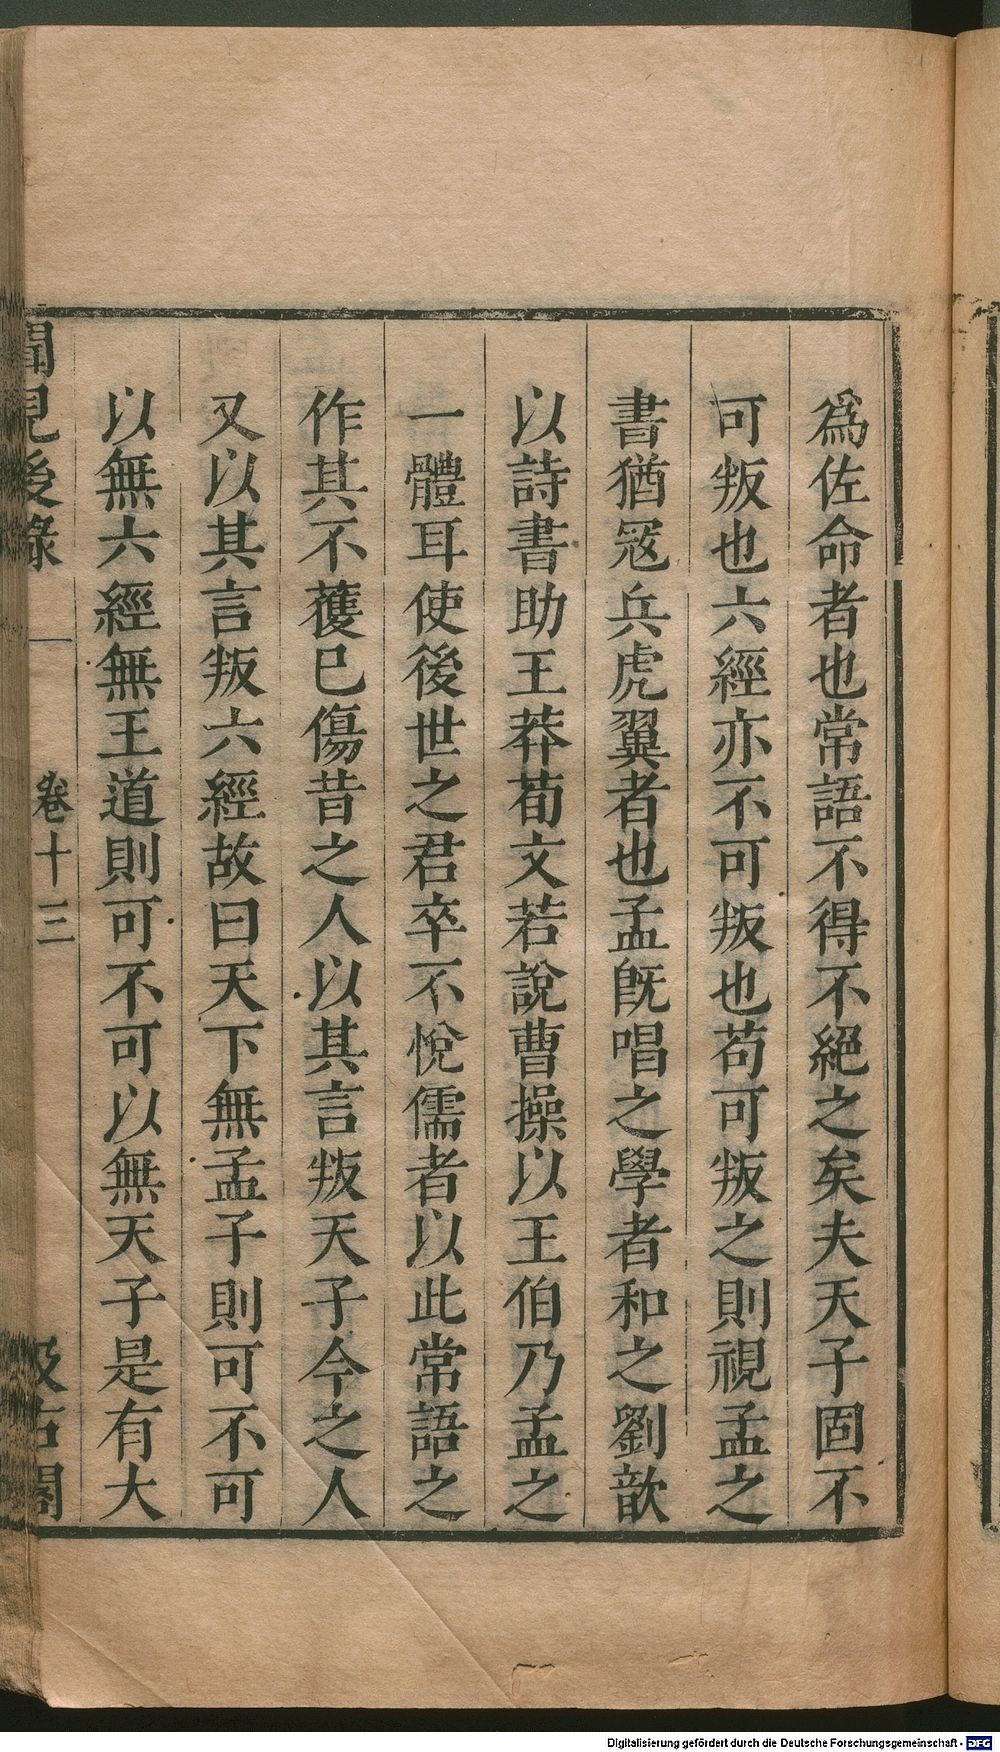 爲佐命者也常語不得不絕之矣夫天子固不
可叛也六經亦不可叛也苟可叛之則視孟之
書猶寇兵虎翼者也孟旣唱之學者和之劉歆
以詩書助王莽荀文若說曹操以王伯乃孟之
一體耳使後世之君卒不悅儒者以此常語之
作其不獲已傷昔之人以其言叛天子今之人
又以其言叛六經故曰天下無孟子則可不可
以無六經無王道則可不可以無天子是有大
聞見後錄
卷十三
汲古閣
Digitalisierung gefördert durch die Deutsche Forschungsgemeinschaft - DFG